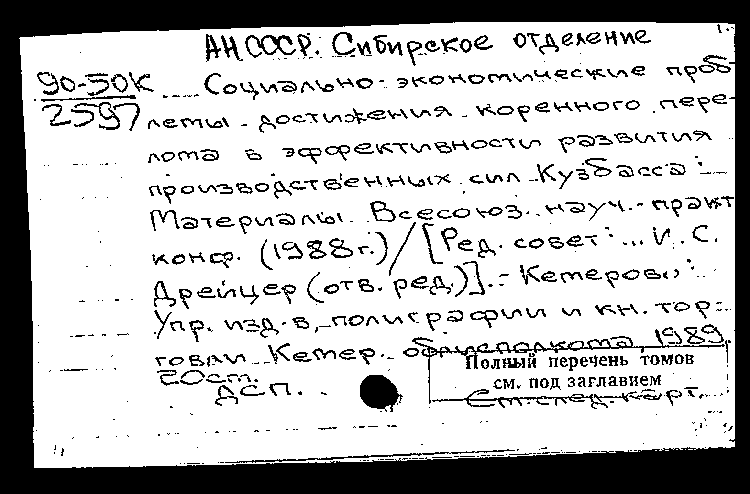 АН СССР. Сибирское отделение
90-50К Социально-экономические проб-
2597 лемы достижения коренного пере-
лома в эффективности развития
производственных сил Кузбасса:
Материалы Всесоюз. науч.-практ
конф. (1988 г.) / [Ред. совет: ... И. С.
Дрейцер (отв. ред.)]. - Кемерово:
Упр. изд-в, полиграфии и кн. тор-
говли Кемер. облисполкома, 1989
20 см.
ДСП.
Полный перечень томов
см. под заглавием
См. след. карт.